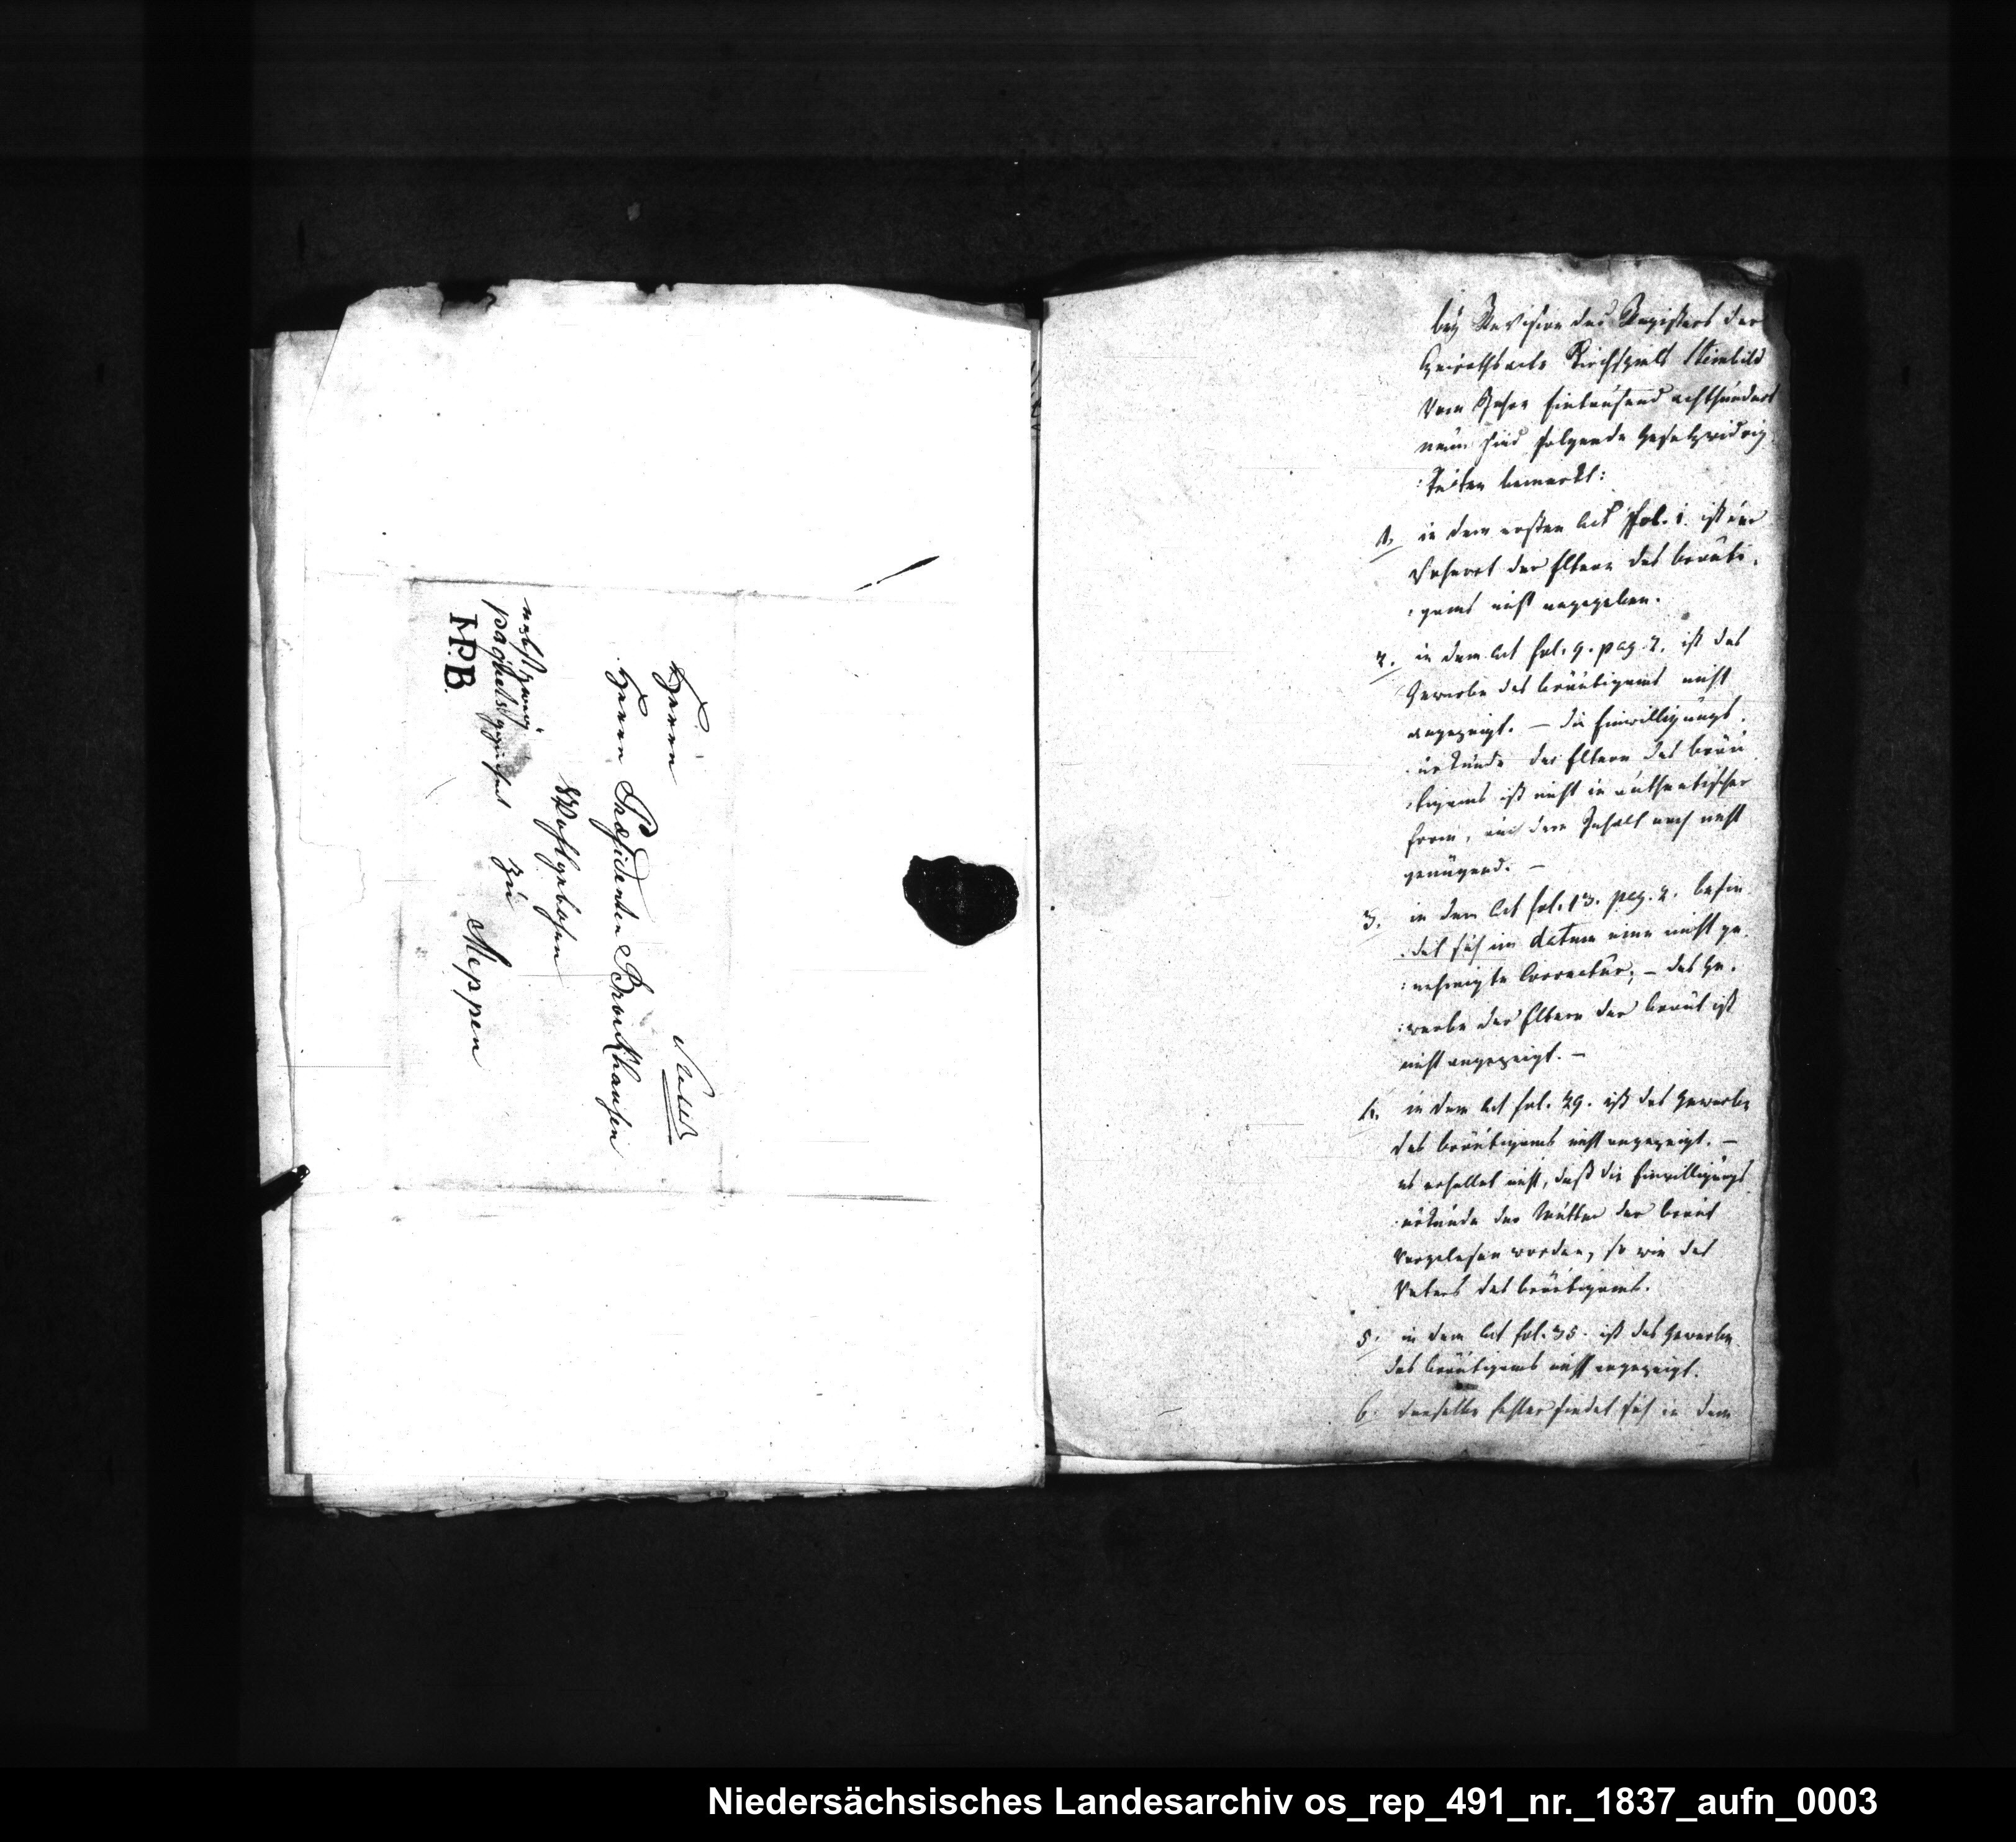 Herrn
Herrn Præsidenten Broickhausen
Wohlgebohren
zu
Meppen
nebst zwei
paquets gezeichnet
H.P.B.
bey Revision des Registers der
Heirathsacte Kirchspiels Steinbild
vom Jahre Eintausend achthundert
neun sind folgende Gesetzwidrig
:keiten bemerkt:
1, in dem ersten Act fol. 1. ist der
Wohnort der Eltern des Bräuti-
:gams nicht angegeben.
2. in dem Act fol. 9. pag. 2. ist das
Gewerbe des Bräutigams nicht
angezeigt. – die Einwilligungs-
:urkunde der Eltern des Bräu
:tigams ist nicht in authentischer
Form, und dem Inhalt nach nicht
genügend. –
3. in dem Act fol. 13. pag. 2. befin
:det sich im datum eine nicht ge-
:nehmigte Correctur; – das Ge-
:werbe der Eltern der Braut ist
nicht angezeigt. –
4. in dem Act fol. 29. ist das Gewerbe
des Bräutigams nicht angezeigt. –
es erhellet nicht, daß die Einwilligungs
:urkunde der Mutter der Braut
vorgelesen worden, so wie des
Vaters des Bräutigams.
5. in dem Act fol. 35. ist das Gewerbe
des Bräutigams nicht angezeigt.
6. derselbe Fehler findet sich in dem
Niedersächsisches Landesarchiv os_rep_491_nr._1837_aufn_0003